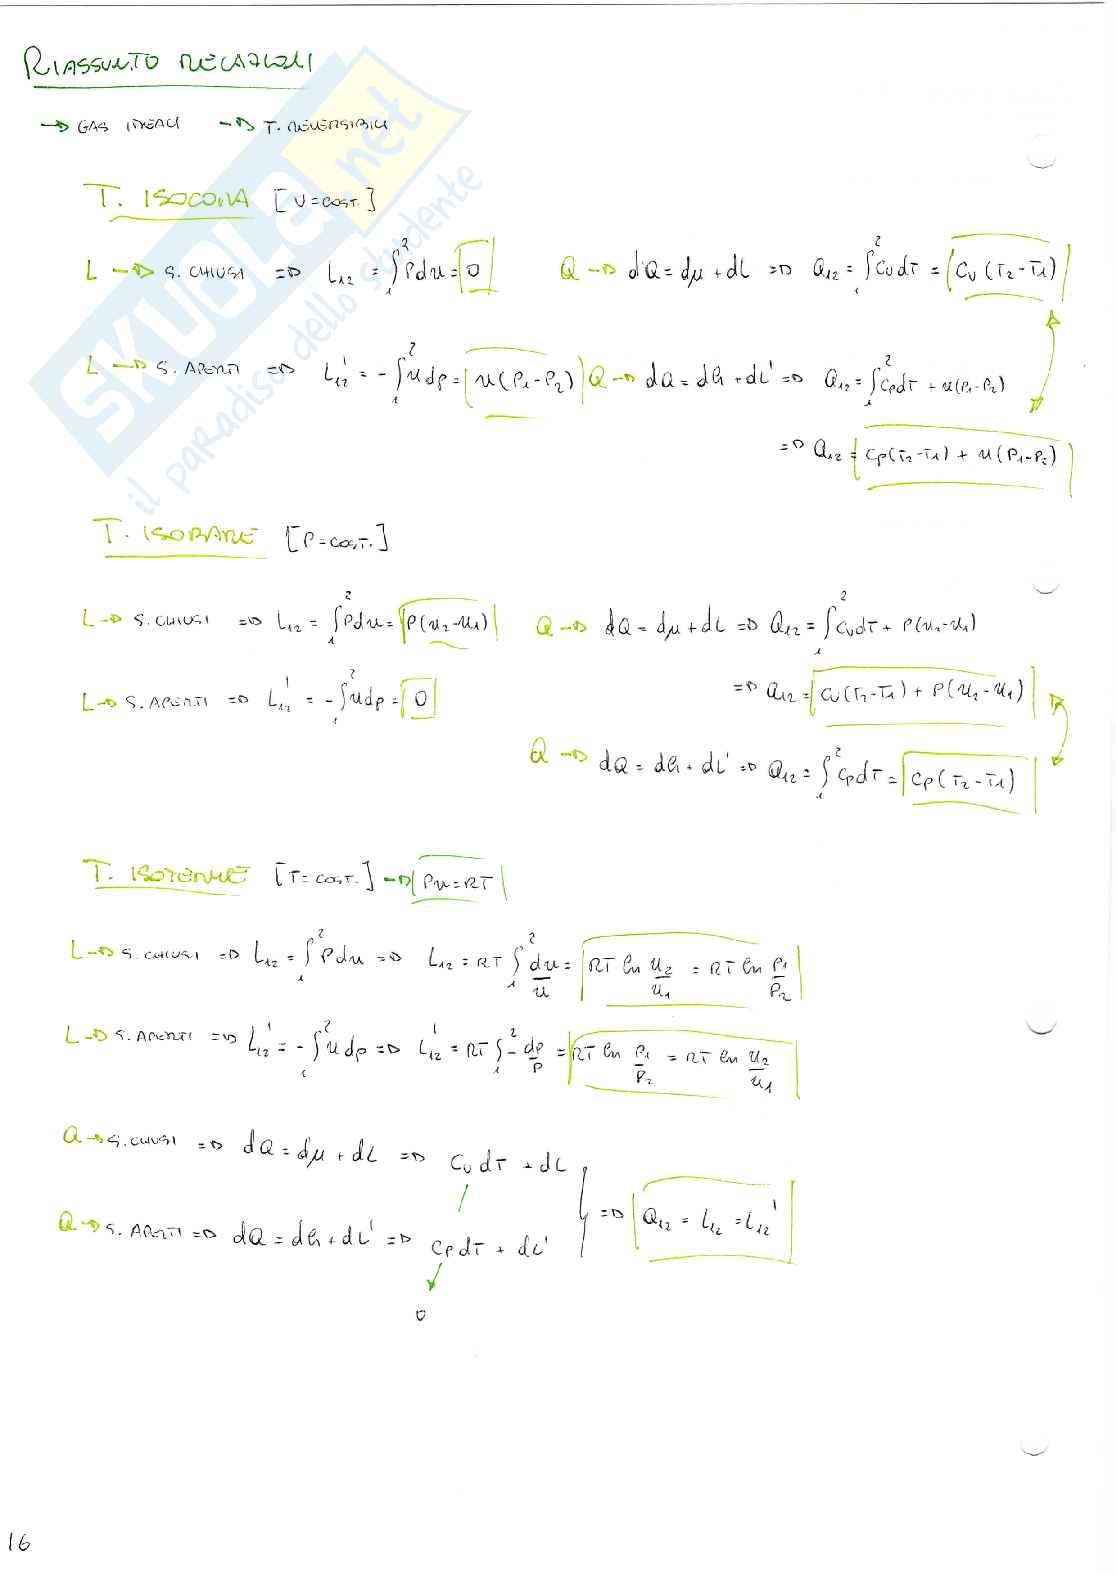 RIASSUNTO RELAZIONI
→ GAS IDEALI → T. REVERSIBILI
T. ISOCORA [V=COST.]
L → S. CHIUSI ⇒ L₁₂ = ∫₁² Pdv = 0 Q → dQ = dμ + dL ⇒ Q₁₂ = ∫₁² Cv dT = Cv (T₂-T₁)
L → S. APERTI ⇒ L₁₂' = -∫₁² v dp = v(P₁-P₂) Q → dQ = dh + dL' ⇒ Q₁₂ = ∫₁² Cp dT + v(P₁-P₂)
⇒ Q₁₂ = Cp(T₂-T₁) + v(P₁-P₂)
T. ISOBARE [P=COST.]
L → S. CHIUSI ⇒ L₁₂ = ∫₁² Pdv = P(v₂-v₁) Q → dQ = dμ + dL ⇒ Q₁₂ = ∫₁² Cv dT + P(v₂-v₁)
⇒ Q₁₂ = Cv(T₂-T₁) + P(v₂-v₁)
L → S. APERTI ⇒ L₁₂' = -∫₁² v dp = 0
Q → dQ = dh + dL' ⇒ Q₁₂ = ∫₁² Cp dT = Cp(T₂-T₁)
T. ISOTERME [T=COST.] → Pv=RT
L → S. CHIUSI ⇒ L₁₂ = ∫₁² Pdv ⇒ L₁₂ = RT ∫₁² dv/v = RT ln v₂/v₁ = RT ln P₁/P₂
L → S. APERTI ⇒ L₁₂' = -∫₁² v dp ⇒ L₁₂' = RT ∫₁² -dp/P = RT ln P₁/P₂ = RT ln v₂/v₁
Q → S. CHIUSI ⇒ dQ = dμ + dL ⇒ Cv dT + dL
⇒ Q₁₂ = L₁₂ = L₁₂'
Q → S. APERTI ⇒ dQ = dh + dL' ⇒ Cp dT + dL'
0
16
SKUOLA.net
il paradiso dello studente